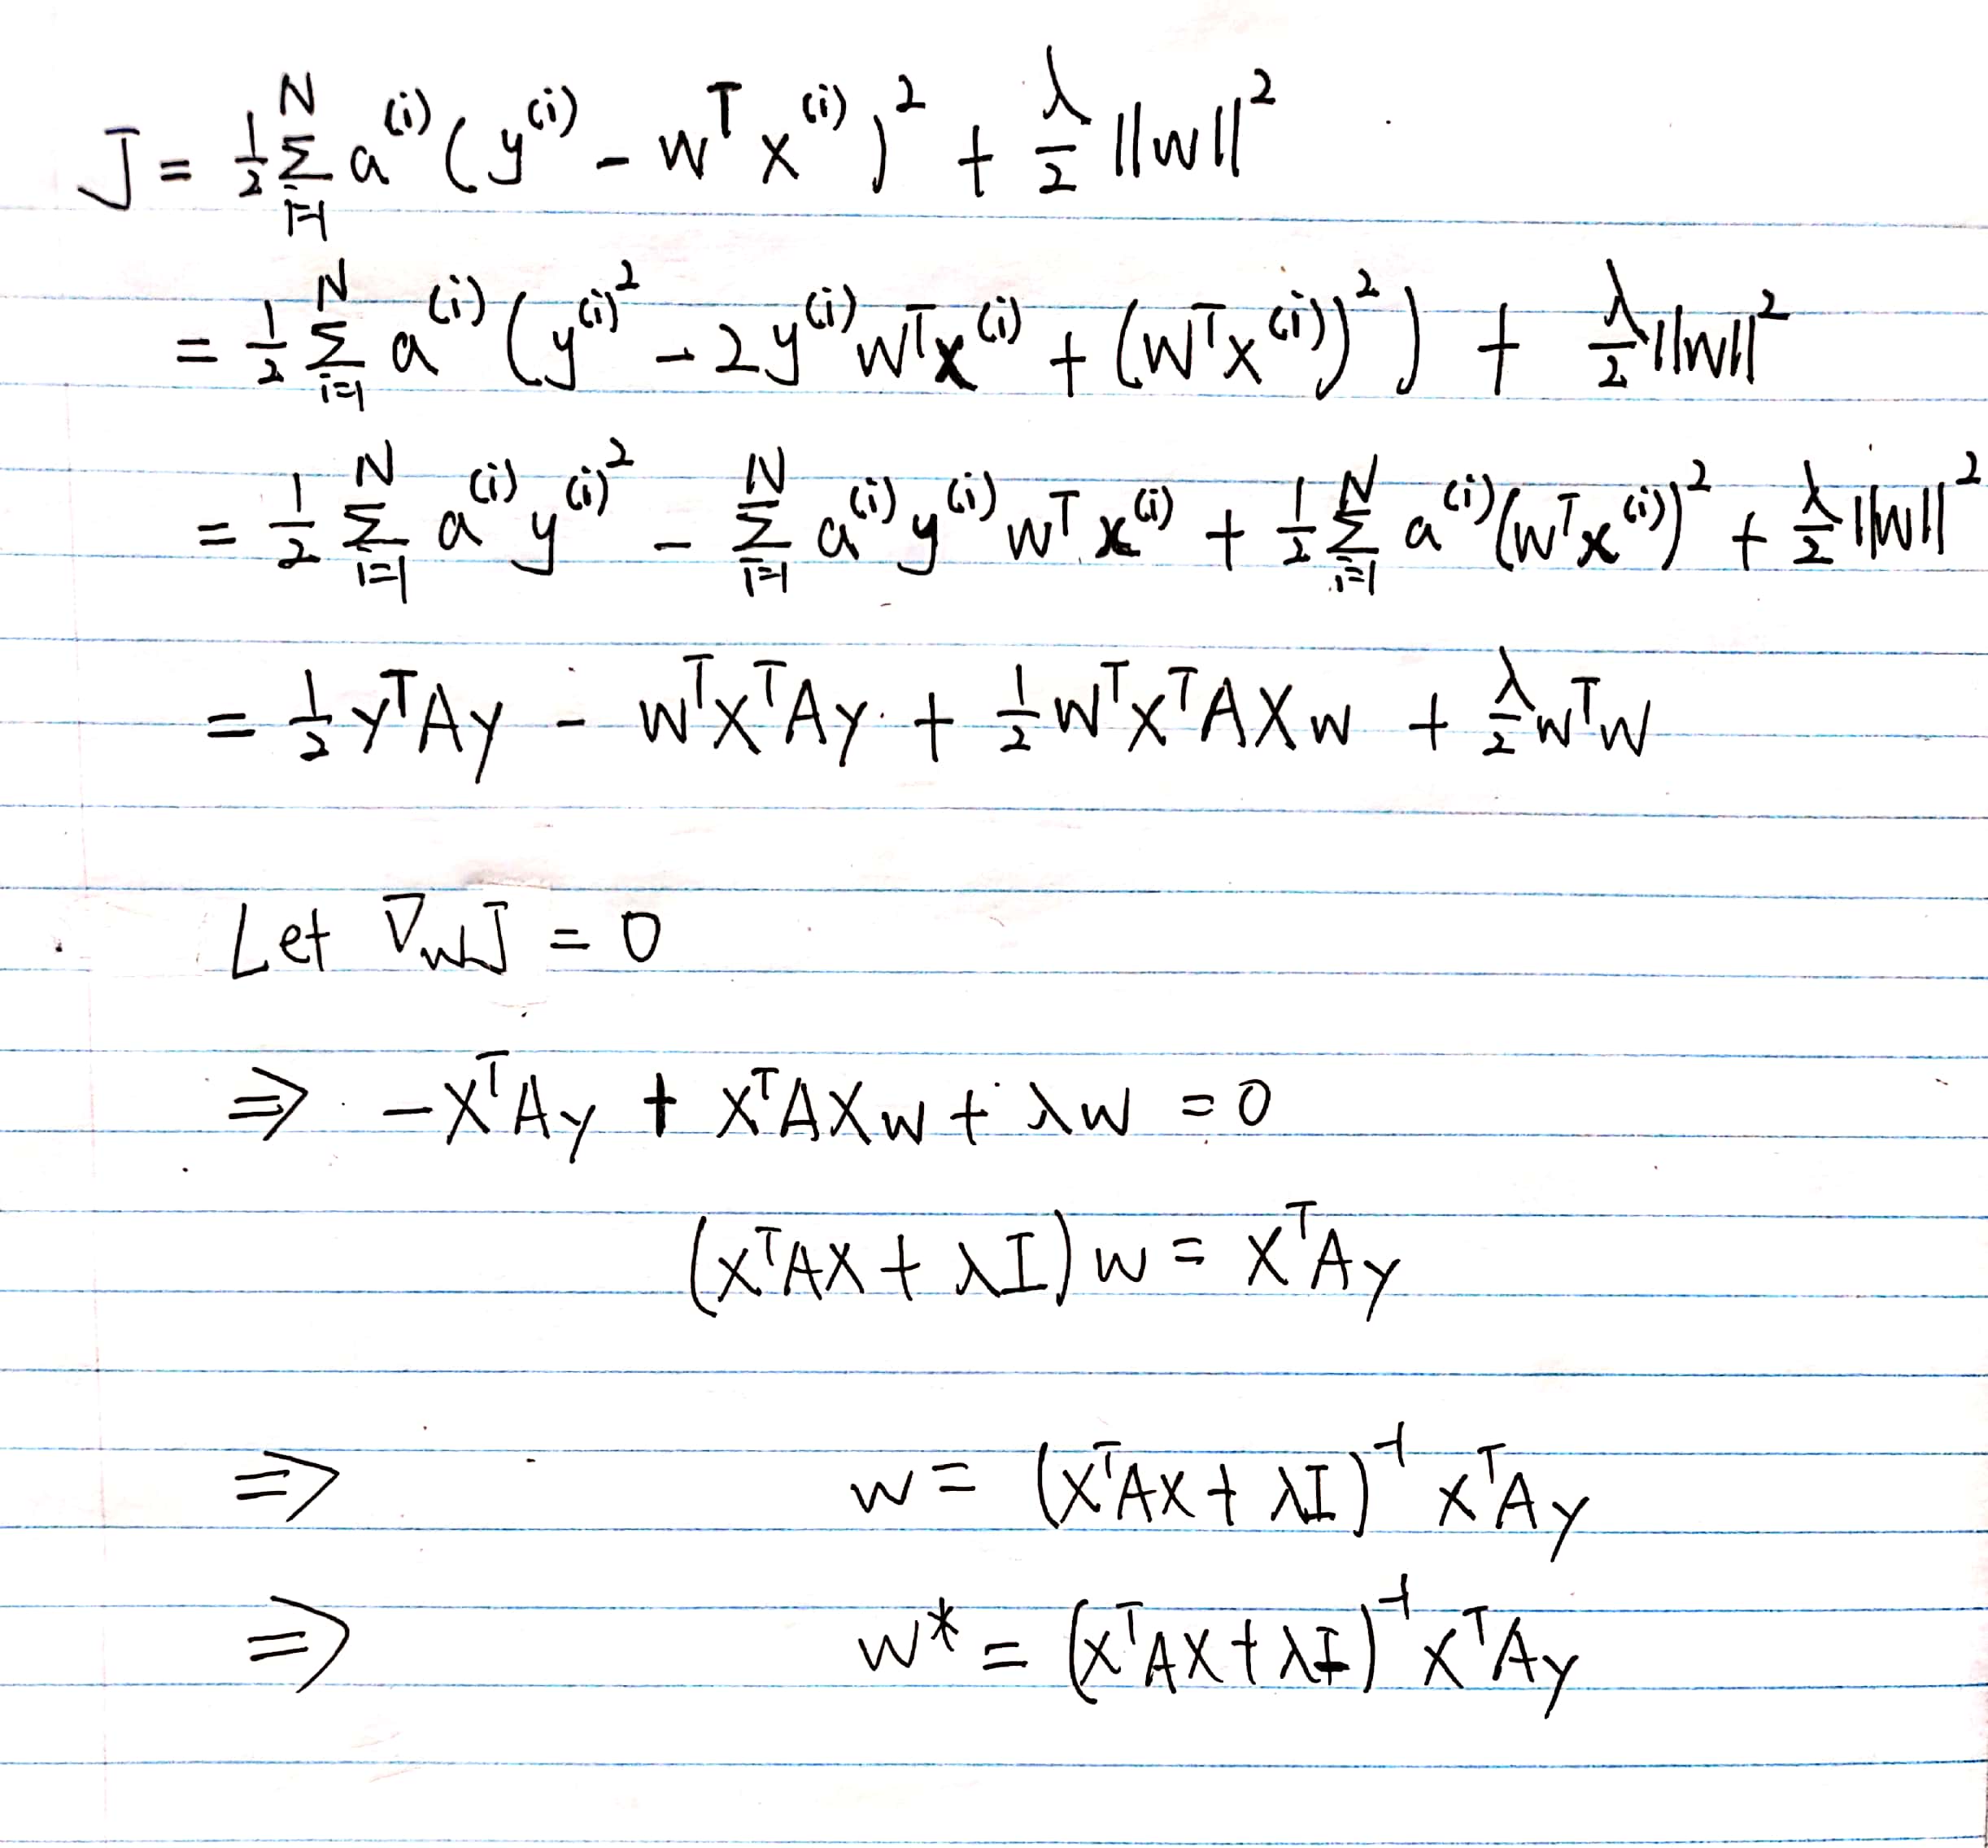 J = ½ Σ_{i=1}^{N} a^{(i)} (y^{(i)} - w^T x^{(i)})² + λ/2 ||w||²
= ½ Σ_{i=1}^{N} a^{(i)} (y^{(i)²} - 2y^{(i)} w^T x^{(i)} + (w^T x^{(i)})²) + λ/2 ||w||²
= ½ Σ_{i=1}^{N} a^{(i)} y^{(i)²} - Σ_{i=1}^{N} a^{(i)} y^{(i)} w^T x^{(i)} + ½ Σ_{i=1}^{N} a^{(i)} (w^T x^{(i)})² + λ/2 ||w||²
= ½ y^T A y - w^T X^T A y + ½ w^T X^T A X w + λ/2 w^T w
Let ∇_w J = 0
⇒ -X^T A y + X^T A X w + λw = 0
(X^T A X + λI) w = X^T A y
⇒ w = (X^T A X + λI)^{-1} X^T A y
⇒ w* = (X^T A X + λI)^{-1} X^T A y